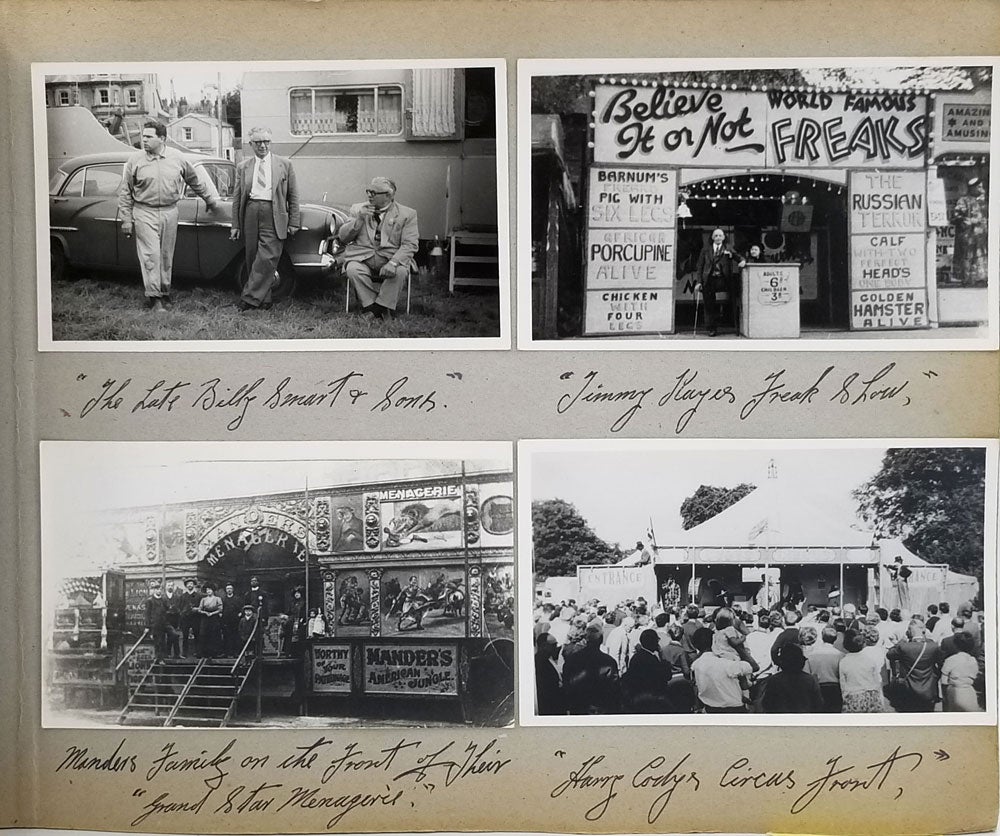 Believe
It or Not
WORLD FAMOUS
FREAKS
AMAZING
AND
AMUSING
BARNUM'S
FREAKS
PIG WITH
SIX LEGS
AFRICAN
PORCUPINE
ALIVE
CHICKEN
WITH
FOUR
LEGS
THE
RUSSIAN
TERROR
CALF
WITH TWO
PERFECT
HEAD'S
ONE BODY
GOLDEN
HAMSTER
ALIVE
ADULTS
6D
CHILDREN
3D
"The Late Billy Smart & Sons."
"Jimmy Kayes Freak Show,"
MENAGERIE
MANDERS
MENAGERIE
WORTHY
OF YOUR
PATRONAGE
MANDER'S
AMERICAN
JUNGLE.
ENTRANCE
ENTRANCE
Manders Family on the Front of Their
"Grand Star Menagerie."
"Harry Codys Circus Front,"